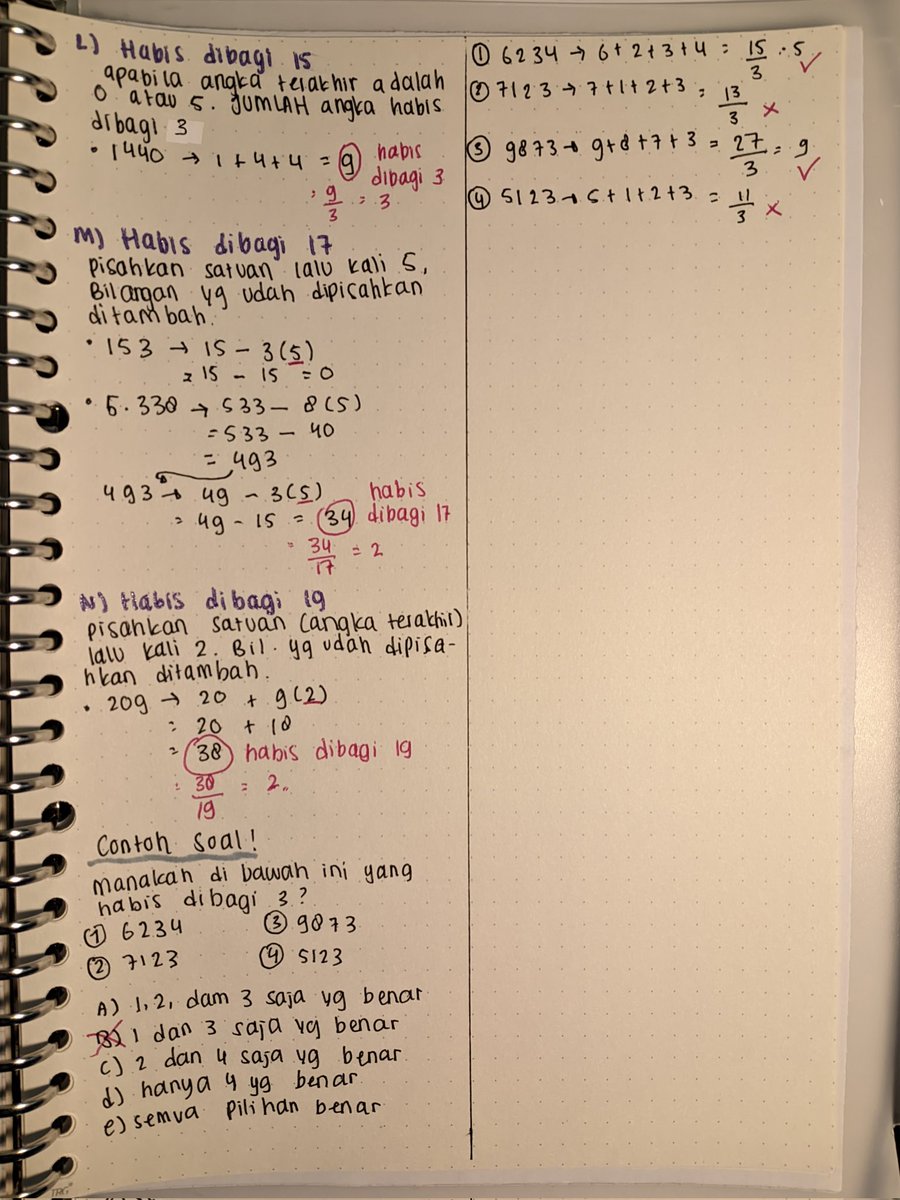 L) Habis dibagi 15
apabila angka terakhir adalah
0 atau 5. JUMLAH angka habis
dibagi 3
• 1440 → 1+4+4 = 9 habis
dibagi 3
= 9/3 = 3
M) Habis dibagi 17
pisahkan satuan lalu kali 5,
Bilangan yg udah dipisahkan
ditambah.
• 153 → 15 - 3(5)
= 15 - 15 = 0
• 5.338 → 533 - 8(5)
= 533 - 40
= 493
493 → 49 - 3(5) habis
= 49 - 15 = 34 dibagi 17
= 34/17 = 2
N) Habis dibagi 19
pisahkan satuan (angka terakhir)
lalu kali 2. Bil. yg udah dipisa-
hkan ditambah.
• 209 → 20 + 9(2)
= 20 + 18
= 38 habis dibagi 19
= 38/19 = 2.
Contoh Soal!
manakah di bawah ini yang
habis dibagi 3?
① 6234 ③ 9873
② 7123 ④ 5123
A) 1, 2, dam 3 saja yg benar
B) 1 dan 3 saja yg benar
c) 2 dan 4 saja yg benar
d) hanya 4 yg benar
e) semua pilihan benar
① 6234 → 6+2+3+4 = 15/3 = 5 ✓
② 7123 → 7+1+2+3 = 13/3 ×
③ 9873 → 9+8+7+3 = 27/3 = 9 ✓
④ 5123 → 5+1+2+3 = 11/3 ×